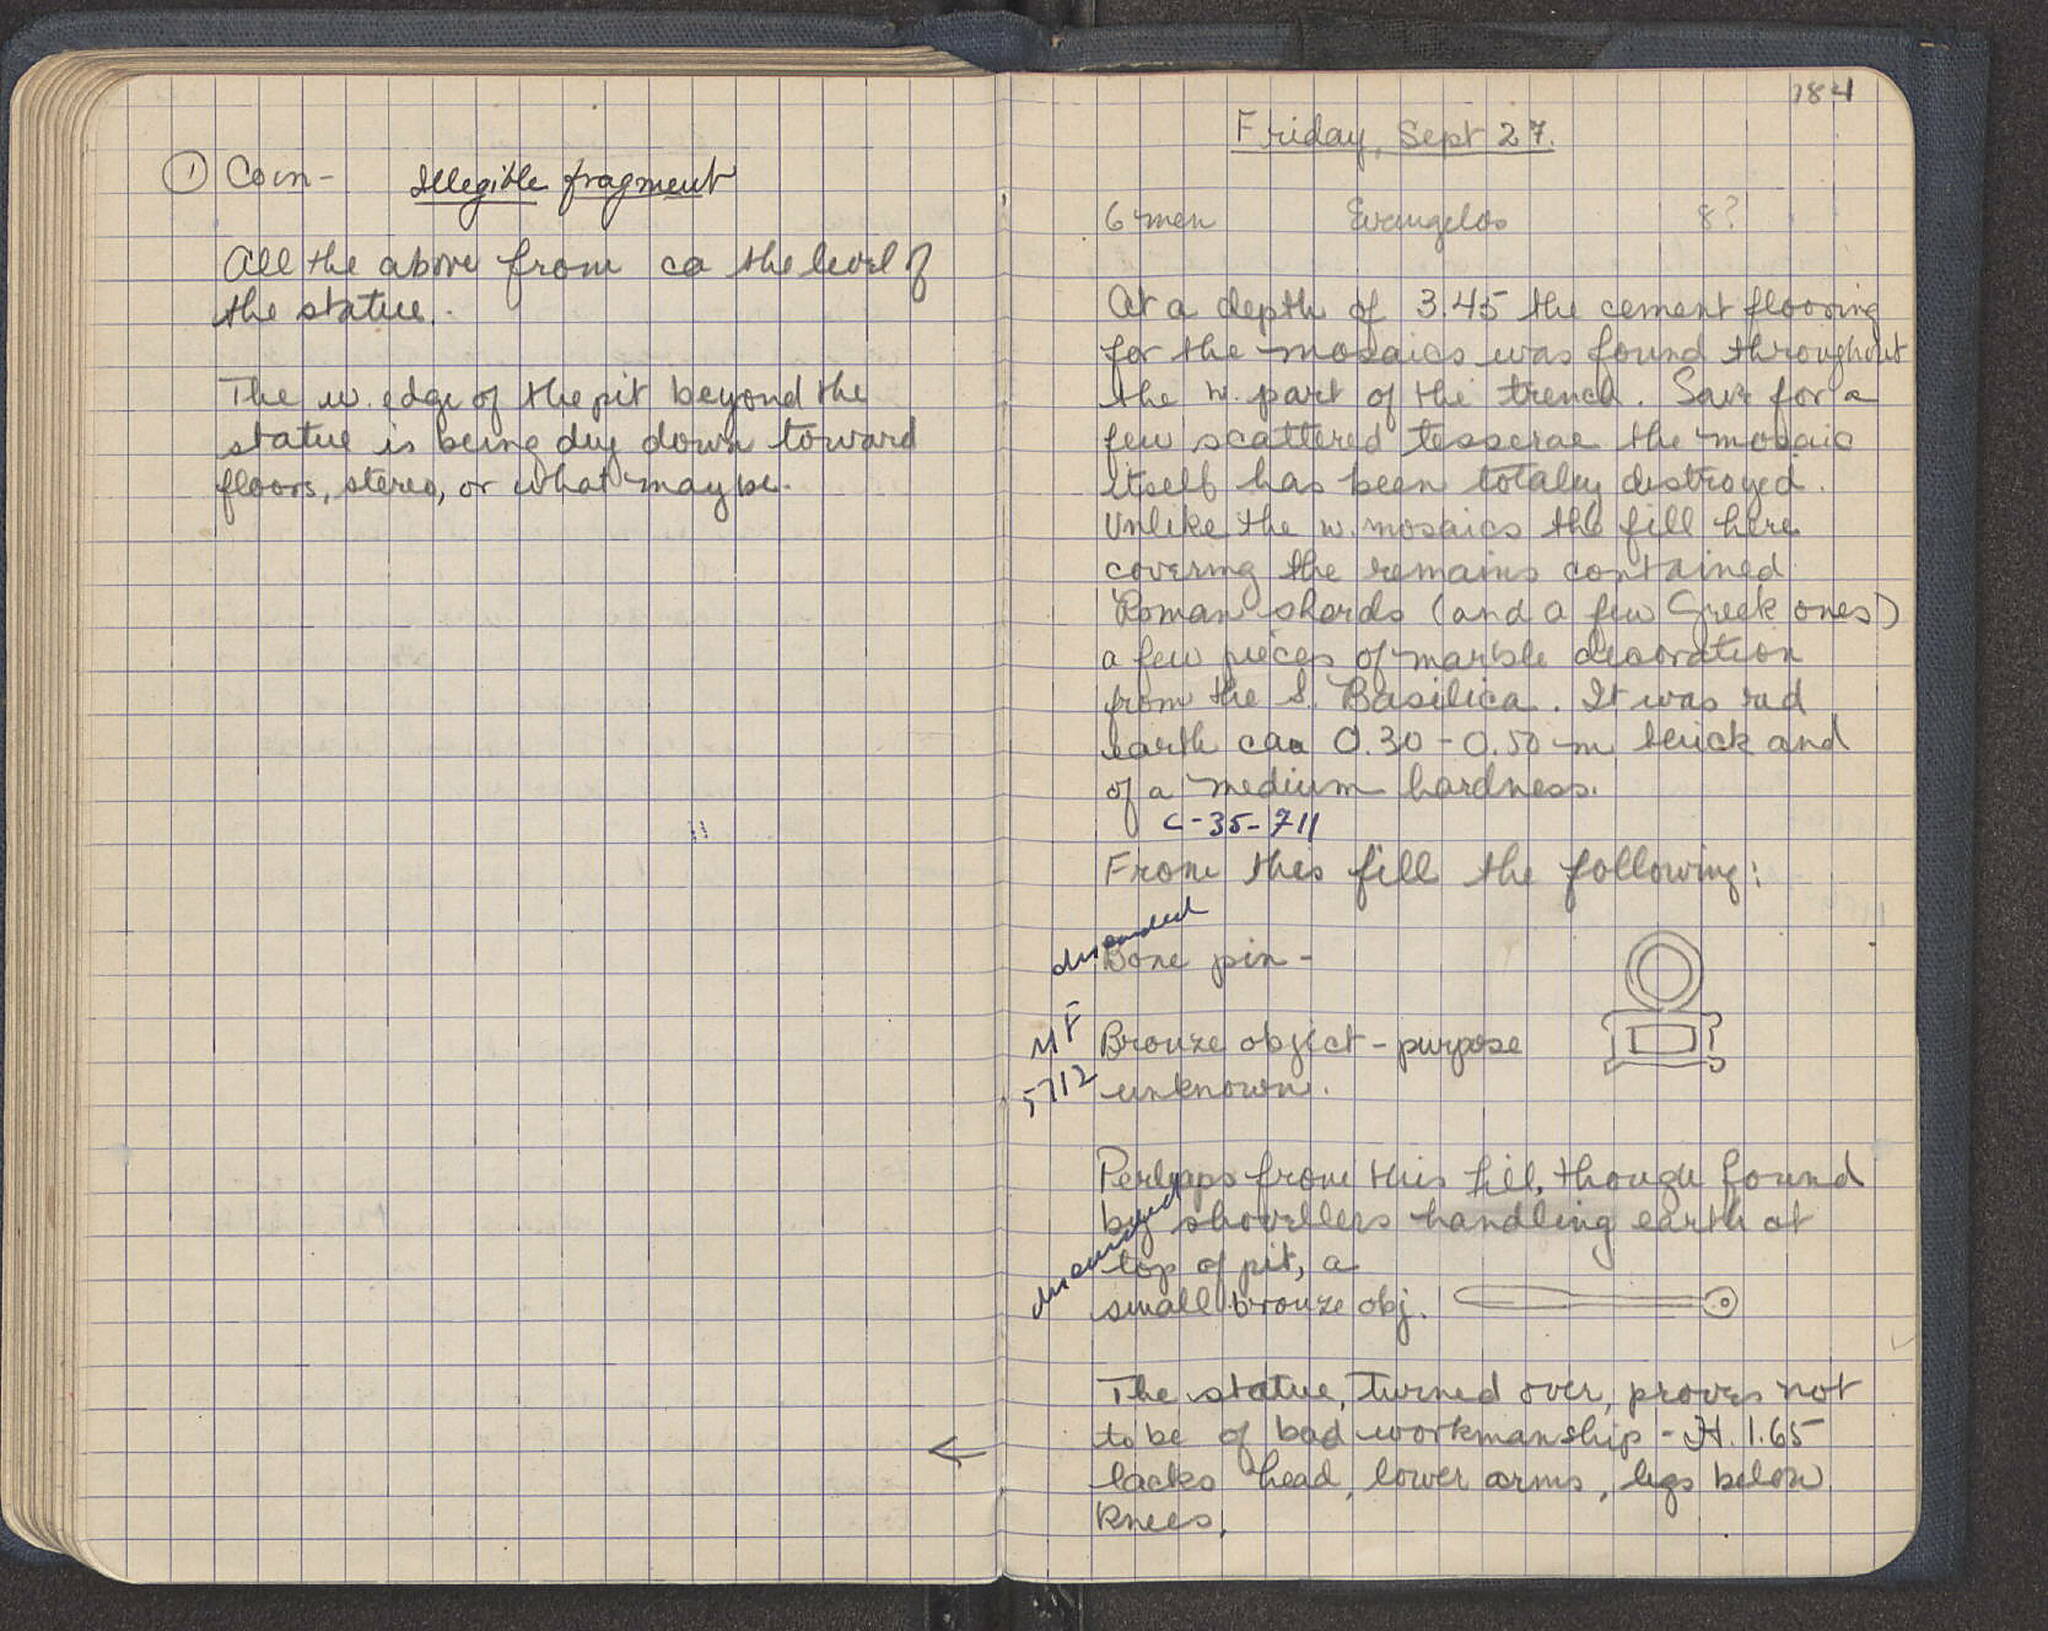 ① Coin- Illegible fragment
All the above from ca the level of
the statue.
The w. edge of the pit beyond the
statue is being dug down toward
floors, stereo, or what may be.
184
Friday, Sept 27.
6 men Evangelos 8?
At a depth of 3.45 the cement flooring
for the mosaics was found throughout
the w. part of the trench. Save for a
few scattered tesserae the mosaic
itself has been totaly destroyed.
Unlike the w. mosaics the fill here
covering the remains contained
Roman sherds (and a few Greek ones)
a few pieces of marble decoration
from the S. Basilica. It was red
earth ca 0.30-0.50 m thick and
of a medium hardness.
C-35-711
From this fill the following:
discarded
Bone pin-
MF
5712
Bronze object - purpose
unknown.
Perhaps from this fill, though found
by shovellers handling earth at
top of pit, a
discarded
small bronze obj.
The statue, turned over, proves not
to be of bad workmanship - H. 1.65
lacks head, lower arms, legs below
knees.